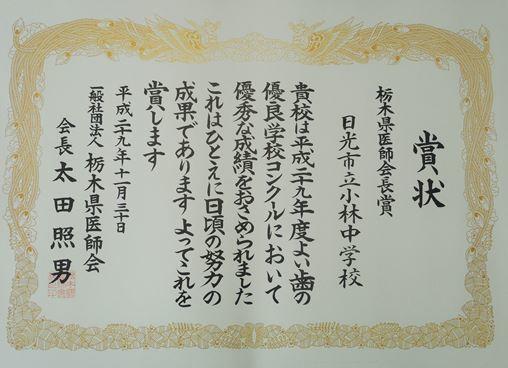 賞状
栃木県医師会長賞
日光市立小林中学校
貴校は平成二十九年度よい歯の
優良学校コンクールにおいて
優秀な成績をおさめられました
これはひとえに日頃の努力の
成果であります よってこれを
賞します
平成二十九年十一月三十日
一般社団法人 栃木県医師会
会長 太田照男